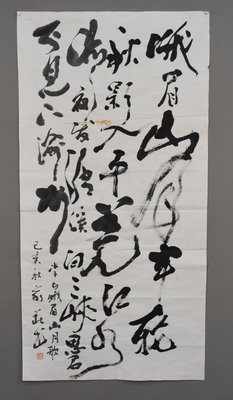 峨眉山月半轮
秋影入平羌江水
流夜发清溪向三峡思君
不见下渝州
李白峨眉山月歌
己亥秋